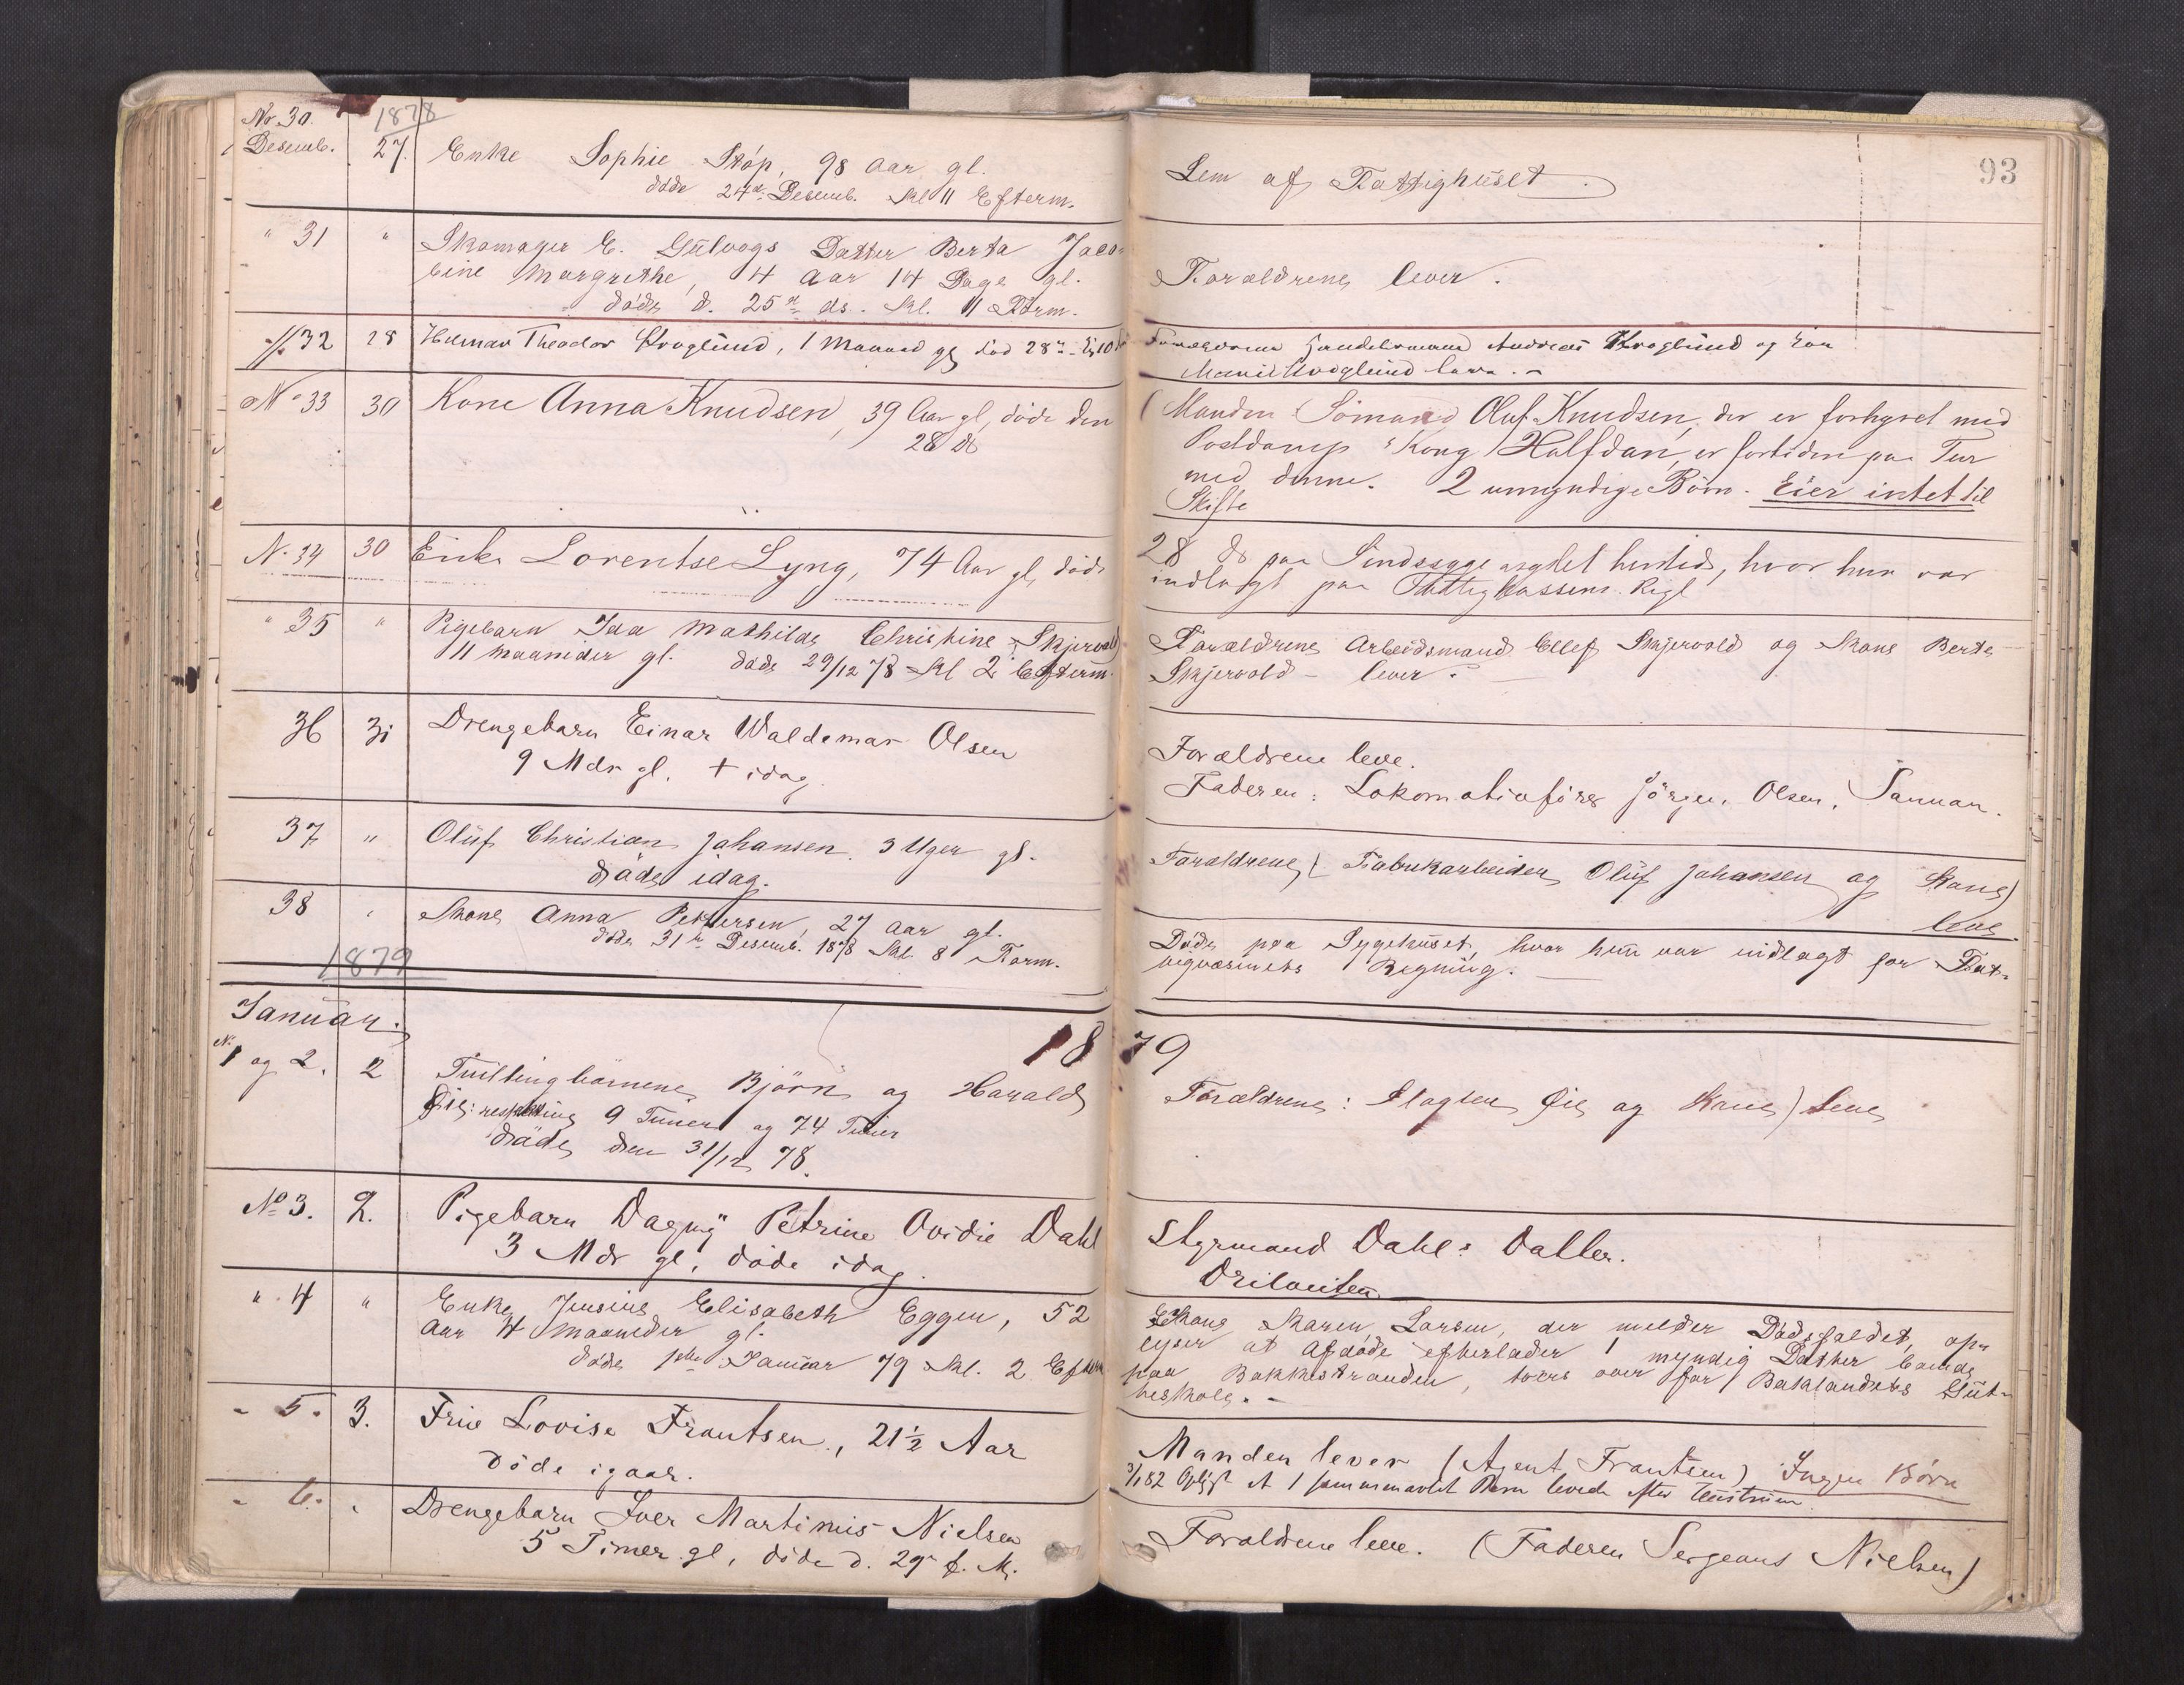 93
Nr. 30.
1878
Desemb. 27. Enke Sophie Støp, 98 Aar gl.
døde 24de Desemb. Kl 11 Efterm.
Lem af Fattighuset.
" 31 " Skomager E. Datter Berta Jaco-
bine Margrethe, 4 Aar 14 Dage gl.
døde d. 25de ds. Kl. 11 Form.
Forældrene lever.
32 28 Hilmar Theodor Kroglund, 1 Maaned gl, død 28de
Forældrene Handelsmand Andreas Kroglund og Kone
Kroglund leve. -
No 33 30 Kone Anna Knudsen, 39 Aar gl, døde den
28 ds
(Manden Sømand Oluf Knudsen, der er forhyret med
Postdamp "Kong Halfdan, er fortiden paa Tur
med denne. 2 umyndige Børn. Eier intet til
Skifte
N. 34 30 Enke Lorentse Lyng, 74 Aar gl, døde
28 ds paa Sindssygeasylet hersteds, hvor hun var
indlagt paa Fattigkassens Regn
" 35 " Pigebarn Ida Mathilde Christine Skjervold
11 Maaneder gl. døde 29/12 78 Kl 2 Efterm.
Forældrene Arbeidsmand Ellef Skjervold og Kone Berte
Skjervold - lever. -
36 31 Drengebarn Einar Waldemar Olsen
9 Mdr gl. + idag.
Forældrene leve.
Faderen: Lokomotivfører Jørgen Olsen,
37 " Oluf Christian Johansen. 3 Uger gl.
døde idag.
Forældrene, (Fabrikarbeider Oluf Johansen og Kone)
leve.
38 " Kone Anna Pettersen, 27 Aar gl.
døde 31te Desemb. 1878 Kl. 8 Form.
Døde paa Sygehuset, hvor hun var indlagt for Fat-
tigvæsenets Regning. -
1879
Januar.
1879
No 1 og 2. 2 Tvillingbørnene Bjørn og Harald
Øie: 9 Timer og 74 Timer
døde den 31/12 78.
Forældrene: Slagter Øie og Kone) Leve
No 3. 2. Pigebarn Dagny Petrine Ovidie Dahl
3 Mdr gl, døde idag.
Styrmand Dahls Datter.
" 4 " Enke Jensine Elisabeth Eggen, 52
Aar 4 Maaneder gl.
døde 1ste Januar 79 Kl. 2 Efterm
Kone Karen Larsen, der melder Dødsfaldet, op-
lyser at Afdøde efterlader 1 myndig Datter boende
paa Bakkestranden, tvers over for Baklandets
- 5. 3. Frue Lovise Frantsen, 21½ Aar
døde igaar.
Manden lever (Agent Frantsen) Ingen Børn
3/1 82 Oplyst at 1 sammenavlet Barn levede efter
- 6. " Drengebarn Iver Martinus Nielsen
5 Timer gl, døde d. 29 f. M.
Forældrene leve. (Faderen Sergeant Nielsen)